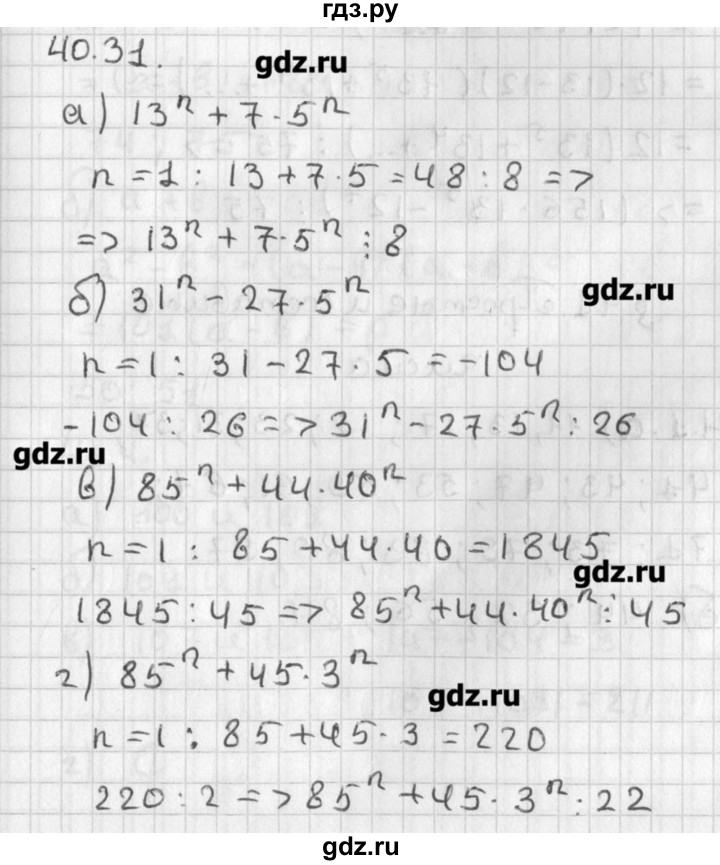 гдз.ру
40.31.
gdz.ru
а) 13ⁿ + 7 · 5ⁿ
n = 1 : 13 + 7 · 5 = 48 : 8 =>
=> 13ⁿ + 7 · 5ⁿ ⋮ 8
б) 31ⁿ - 27 · 5ⁿ
gdz.ru
n = 1 : 31 - 27 · 5 = -104
-104 : 26 => 31ⁿ - 27 · 5ⁿ : 26
gdz.ru
в) 85ⁿ + 44 · 40ⁿ
n = 1 : 85 + 44 · 40 = 1845
gdz.ru
1845 : 45 => 85ⁿ + 44 · 40ⁿ ⋮ 45
г) 85ⁿ + 45 · 3ⁿ
gdz.ru
n = 1 : 85 + 45 · 3 = 220
220 : 2 => 85ⁿ + 45 · 3ⁿ : 22
gdz.ru